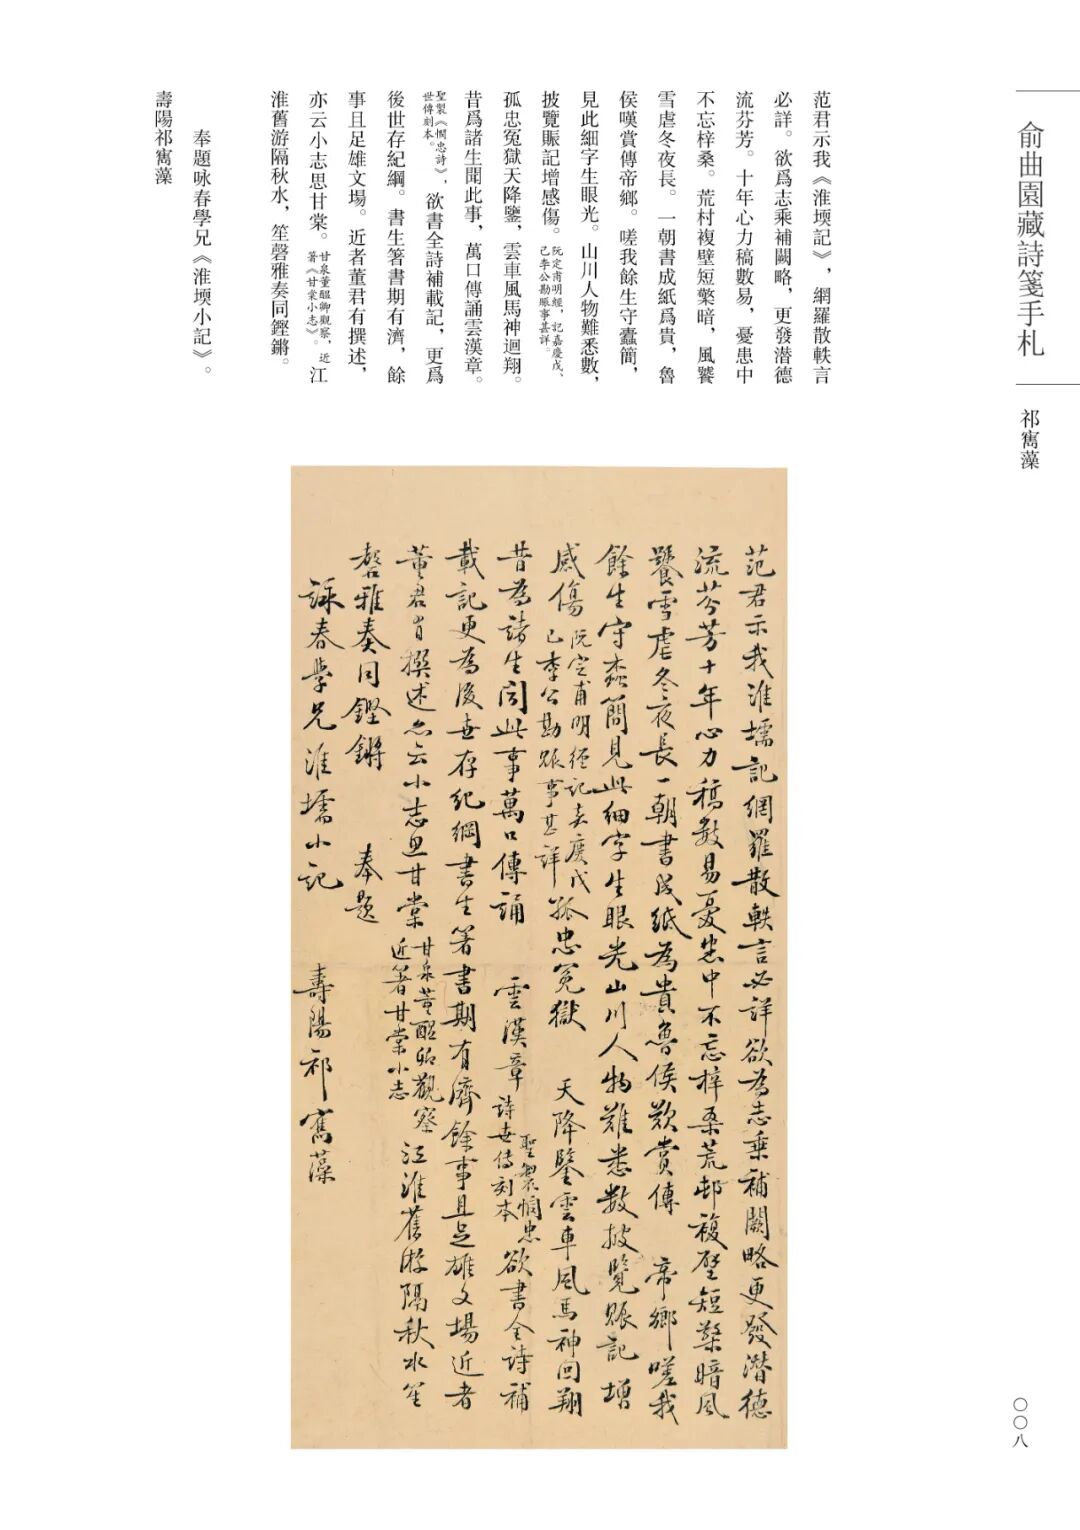 俞曲園藏詩箋手札
祁寯藻
范君示我《淮堧記》，網羅散軼言
必詳。欲爲志乘補闕略，更發潜德
流芬芳。十年心力稿數易，憂患中
不忘梓桑。荒村複壁短檠暗，風饕
雪虐冬夜長。一朝書成紙爲貴，魯
侯嘆賞傳帝鄉。嗟我餘生守蠹簡，
見此細字生眼光。山川人物難悉數，
披覽賑記增感傷。阮定甫明經，記嘉慶戊、己李公勘賑事甚詳。
孤忠冤獄天降鑒，雲車風馬神迴翔。
昔爲諸生聞此事，萬口傳誦雲漢章。
聖製《憫忠詩》，世傳刻本。欲書全詩補載記，更爲
後世存紀綱。書生箸書期有濟，餘
事且足雄文場。近者董君有撰述，
亦云小志思甘棠。甘泉董醖卿觀察，近著《甘棠小志》。江
淮舊游隔秋水，笙磬雅奏同鏗鏘。
奉題咏春學兄《淮堧小記》。
壽陽祁寯藻
范君示我淮壖記網羅散軼言必詳欲為志乘補闕略更發潛德
流芬芳十年心力稿數易憂患中不忘梓桑荒邨複壁短檠暗風
饕雪虐冬夜長一朝書成紙為貴魯侯歎賞傳帝鄉嗟我
餘生守蠹簡見此細字生眼光山川人物難悉數披覽賑記增
感傷阮定甫明經記嘉慶戊己李公勘賑事甚詳孤忠冤獄天降鑒雲車風馬神回翔
昔為諸生聞此事萬口傳誦雲漢章聖製憫忠詩世傳刻本欲書全詩補
載記更為後世存紀綱書生箸書期有濟餘事且足雄文場近者
董君肯撰述亦云小志思甘棠甘泉董醖卿觀察近箸甘棠小志江淮舊游隔秋水笙
磬雅奏同鏗鏘奉題
詠春學兄淮壖小記壽陽祁寯藻
〇〇八